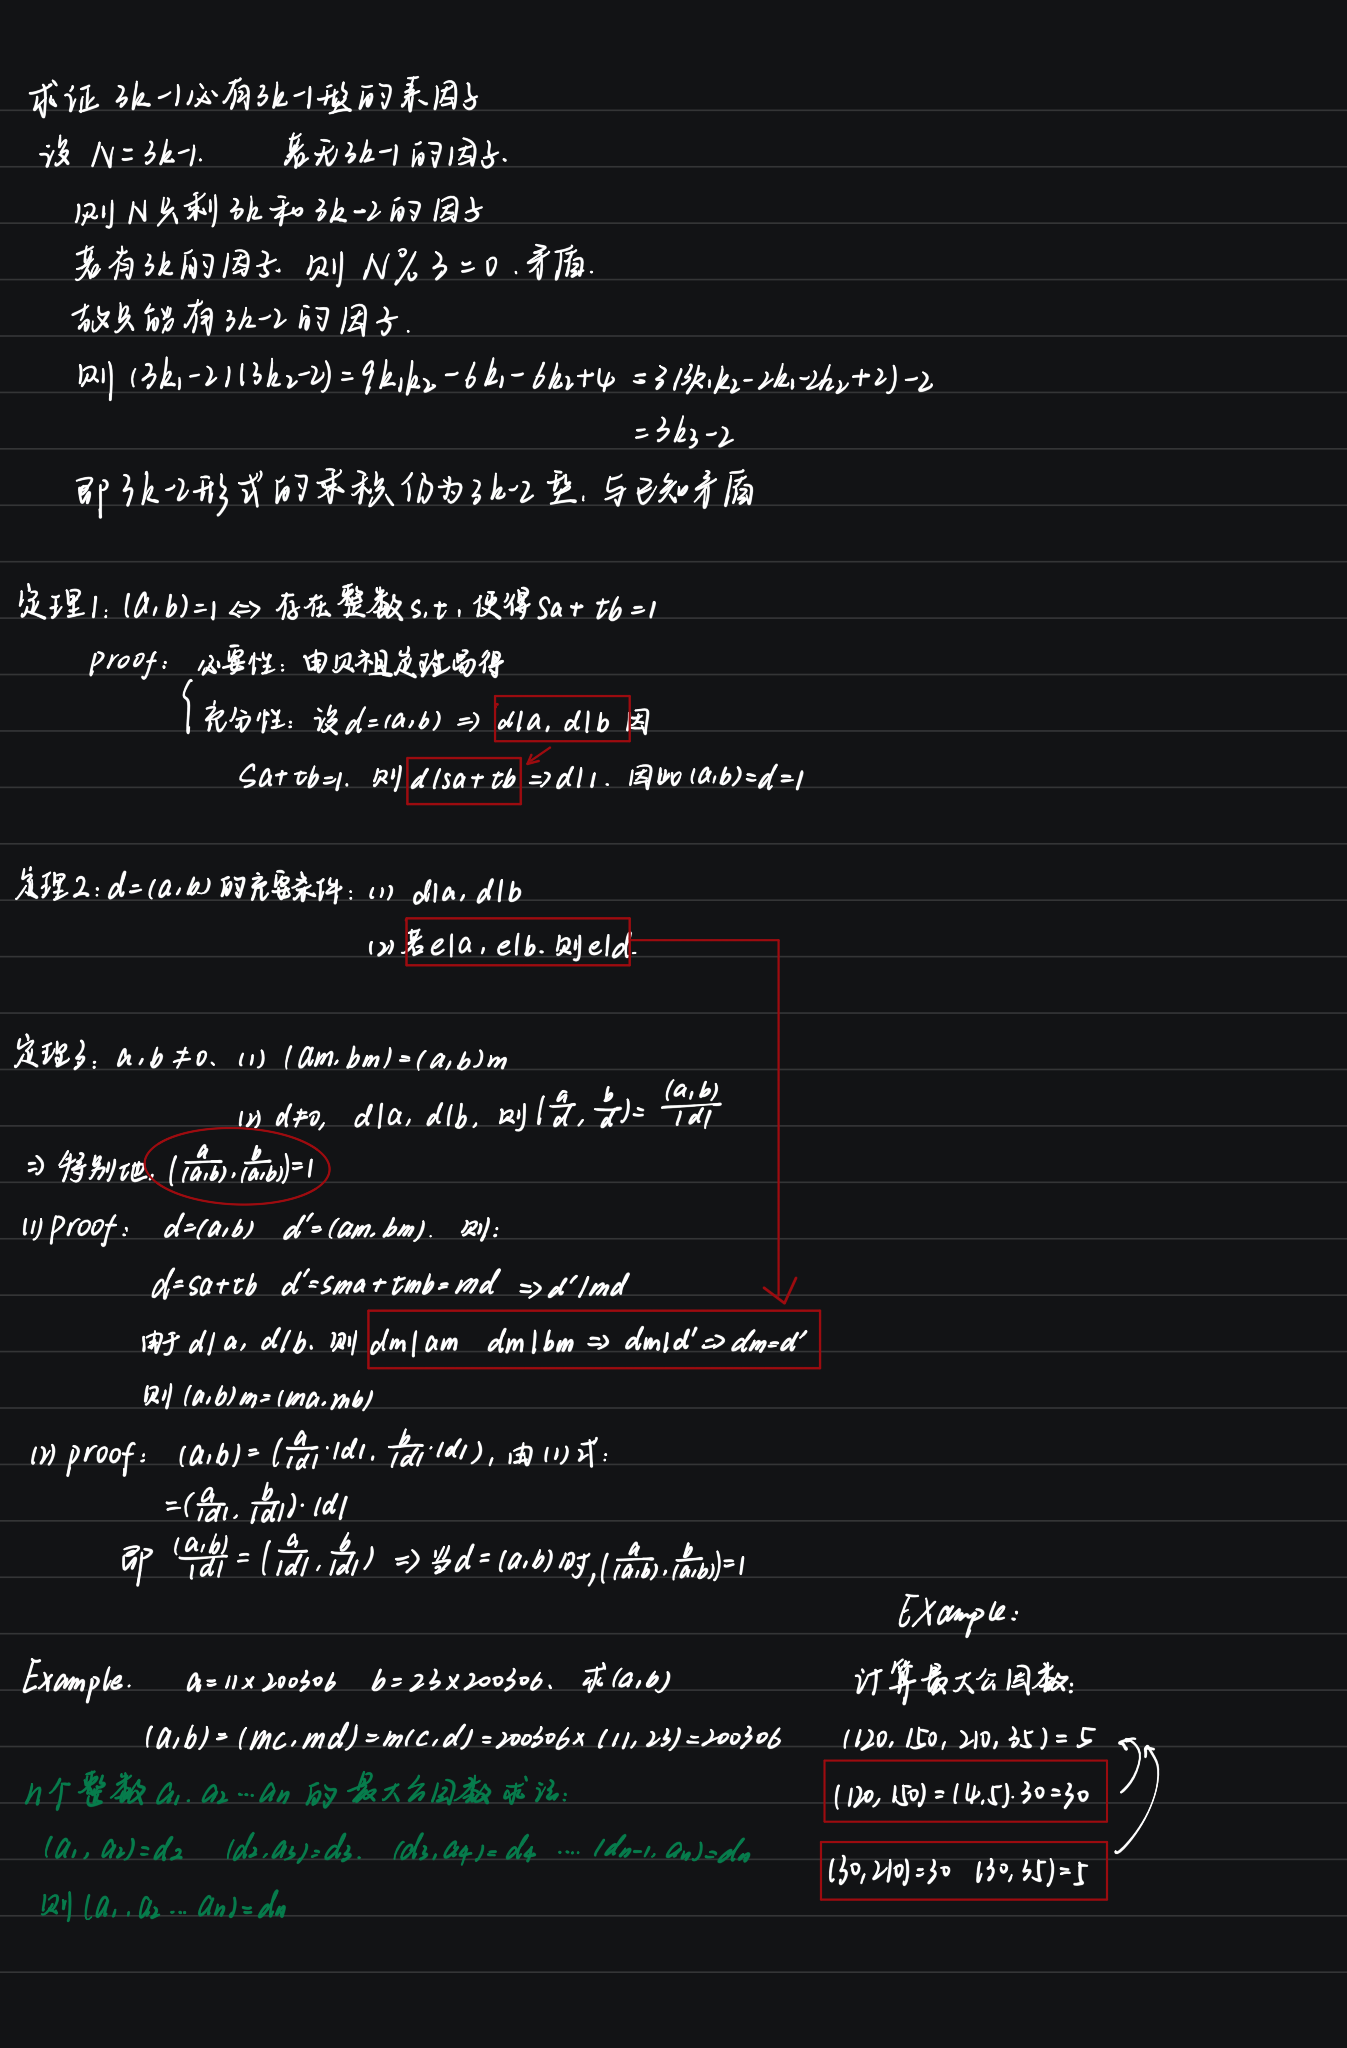 求证 3k-1必有3k-1型的素因子
设 N=3k-1. 若无3k-1的因子.
则N只剩3k和3k-2的因子
若有3k的因子. 则 N%3=0.矛盾.
故只能有3k-2的因子.
则 (3k₁-2)(3k₂-2)=9k₁k₂-6k₁-6k₂+4=3(3k₁k₂-2k₁-2k₂+2)-2
=3k₃-2
即3k-2形式的乘积仍为3k-2型,与已知矛盾
定理1: (a,b)=1 ⇔ 存在整数s,t,使得sa+tb=1
proof: 必要性: 由贝祖定理易得
充分性: 设d=(a,b) ⇒ d|a, d|b 因
sa+tb=1. 则 d|sa+tb ⇒ d|1. 因此(a,b)=d=1
定理2: d=(a,b)的充要条件: (1) d|a, d|b
(2) 若e|a, e|b. 则e|d.
定理3: a,b≠0、(1) (am,bm)=(a,b)m
(2) d≠0, d|a, d|b, 则(a/d, b/d)=(a,b)/|d|
⇒ 特别地. (a/(a,b), b/(a,b))=1
(1) proof: d=(a,b) d'=(am,bm). 则:
d=sa+tb d'=sma+tmb=md ⇒ d'|md
由于d|a, d|b. 则 dm|am dm|bm ⇒ dm|d' ⇒ dm=d'
则(a,b)m=(ma,mb)
(2) proof: (a,b)=(a/|d|·|d|, b/|d|·|d|), 由(1)式:
=(a/|d|, b/|d|)·|d|
即 (a,b)/|d|=(a/|d|, b/|d|) ⇒ 当d=(a,b)时,(a/(a,b), b/(a,b))=1
Example. a=11×200306 b=23×200306、求(a,b)
(a,b)=(mc,md)=m(c,d)=200306×(11,23)=200306
n个整数a₁,a₂…aₙ的最大公因数求法:
(a₁,a₂)=d₂ (d₂,a₃)=d₃. (d₃,a₄)=d₄ ….(dₙ₋₁,aₙ)=dₙ
则(a₁,a₂…aₙ)=dₙ
Example:
计算最大公因数:
(120,150,210,35)=5
(120,150)=(4,5)·30=30
(30,210)=30 (30,35)=5